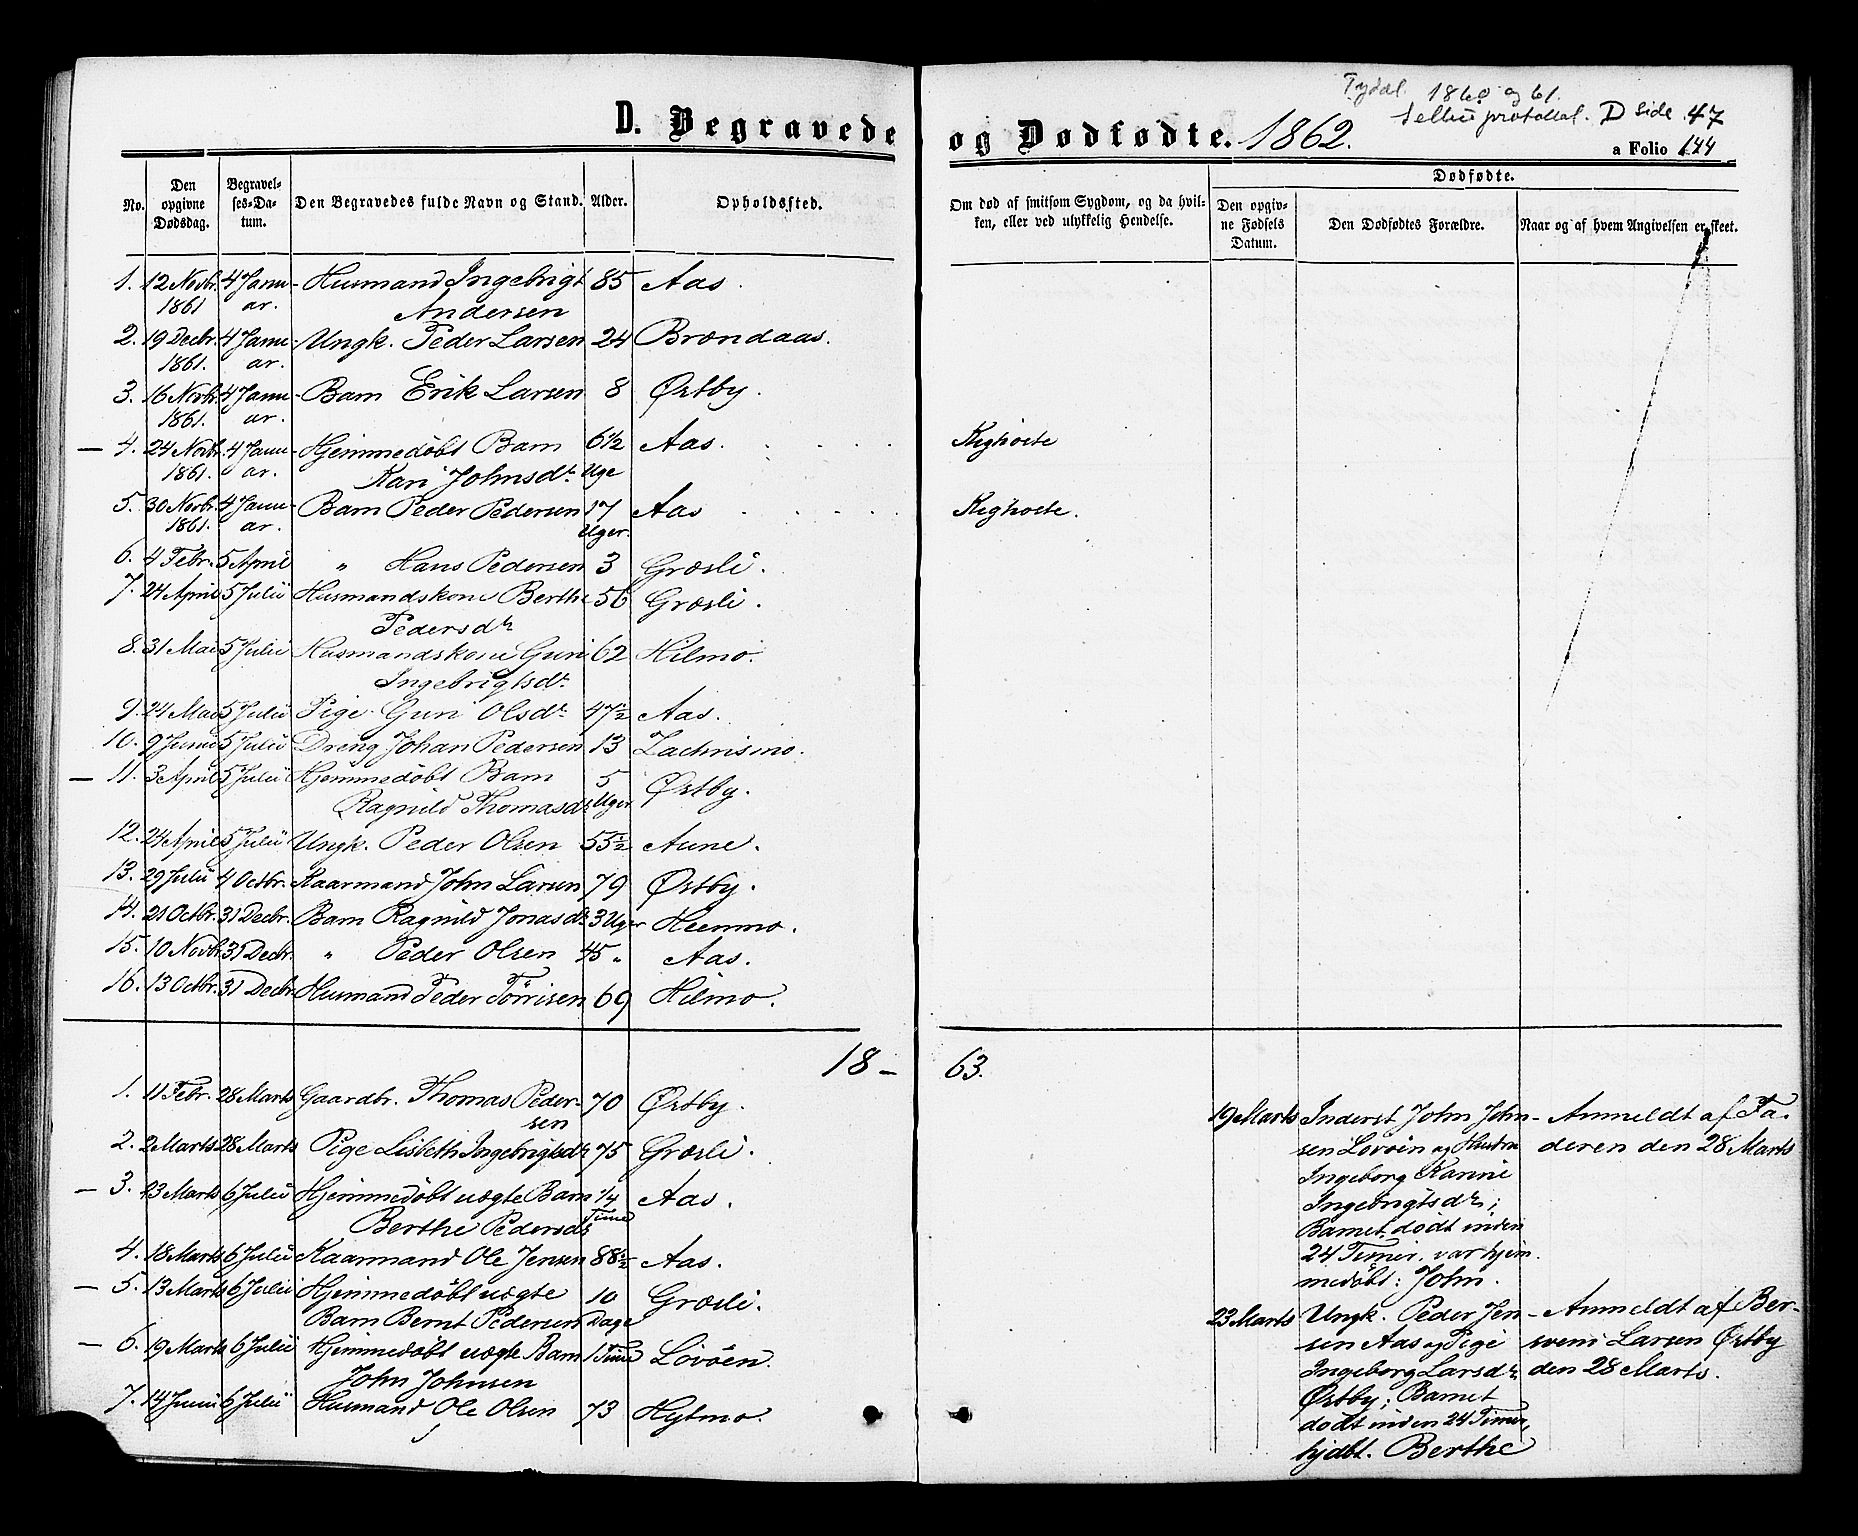 Tydal. 1860 og 61.
Selbu protokol. D side 47
D. Begravede og Dødfødte. 1862.
a Folio 144
No. Den opgivne Dødsdag. Begravelses-Datum. Den Begravedes fulde Navn og Stand. Alder. Opholdssted. Om død af smitsom Sygdom, og da hvilken, eller ved ulykkelig Hendelse. Dødfødte. Den opgivne Fødsels Datum. Den Dødfødtes Forældre. Naar og af hvem Angivelsen er skeet.
1. 12 Novbr. 4 Janu- Husmand Ingebrigt 85 Aas.
1861 ar. Andersen
2. 19 Decbr. 4 Janu- Ungk. Peder Larsen 24 Brændaas.
1861. ar.
3. 16 Novbr. 4 Janu- Barn Erik Larsen 8 Østby.
1861. ar.
— 4. 24 Novbr. 4 Janu- Hjemmedøbt Barn 6½ Aas. Kighoste
1861. ar. Kari Johnsdr. Uge
5. 30 Novbr. 4 Janu- Barn Peder Pedersen 17 Aas Kighoste.
1861. ar. Uger.
6. 4 Febr. 5 April " Hans Pedersen 3 Græsli.
7. 24 April 5 Julii Husmandskone Berthe 56 Græsli.
Pedersdr.
8. 31 Mai 5 Julii Husmandskone Guri 62 Hilmo.
Ingebrigtsdr.
9. 24 Mai 5 Julii Pige Guri Olsdr. 47½ Aas.
10. 9 Junii 5 Julii Dreng Johan Pedersen 13 Zachrismo.
— 11. 3 April 5 Julii Hjemmedøbt Barn 5 Østby.
Ragnild Thomasdr. Uger
12. 24 April 5 Julii Ungk. Peder Olsen 55½ Aune.
13. 29 Julii 4 Octbr. Kaarmand John Larsen 79 Østby.
14. 21 Octbr. 31 Decbr. Barn Ragnild Jonasdr. 3 Uger Heemmo.
15. 10 Novbr. 31 Decbr. " Peder Olsen 45 " Aas.
16. 13 Octbr. 31 Decbr. Husmand Peder Tørrisen 69 Hilmo.
18 - 63.
1. 11 Febr. 28 Marts Gaardbr. Thomas Peder- 70 Østby.
sen
2. 2 Marts 28 Marts Pige Lisbeth Ingebrigtsdr. 75 Græsli.
— 3. 23 Marts 6 Julii Hjemmedøbt uægte Barn ¼ Aas.
Berthe Pedersdr. Time
4. 18 Marts 6 Julii Kaarmand Ole Jensen 88½ Aas.
— 5. 13 Marts 6 Julii Hjemmedøbt uægte 10 Græsli.
Barn Bernt Pedersen Dage
— 6. 19 Marts 6 Julii Hjemmedøbt uægte Barn 1 Time Løvøen.
John Johnsen
7. 14 Junii 6 Julii Husmand Ole Olsen 73 Hytmo.
19 Marts Inderst John John- Anmeldt af Fa-
sen Løvøen og Hustru deren den 28 Marts
Ingeborg Kanne
Ingebrigtsdr.;
Barnet dødt inden
24 Timer, var hjem-
medøbt: John.
23 Marts Ungk. Peder Jen- Anmeldt af Ber-
sen Aas og Pige svend Larsen Østby
Ingeborg Larsdr. den 28 Marts.
Østby; Barnet
dødt inden 24 Timer,
hjdbt. Berthe